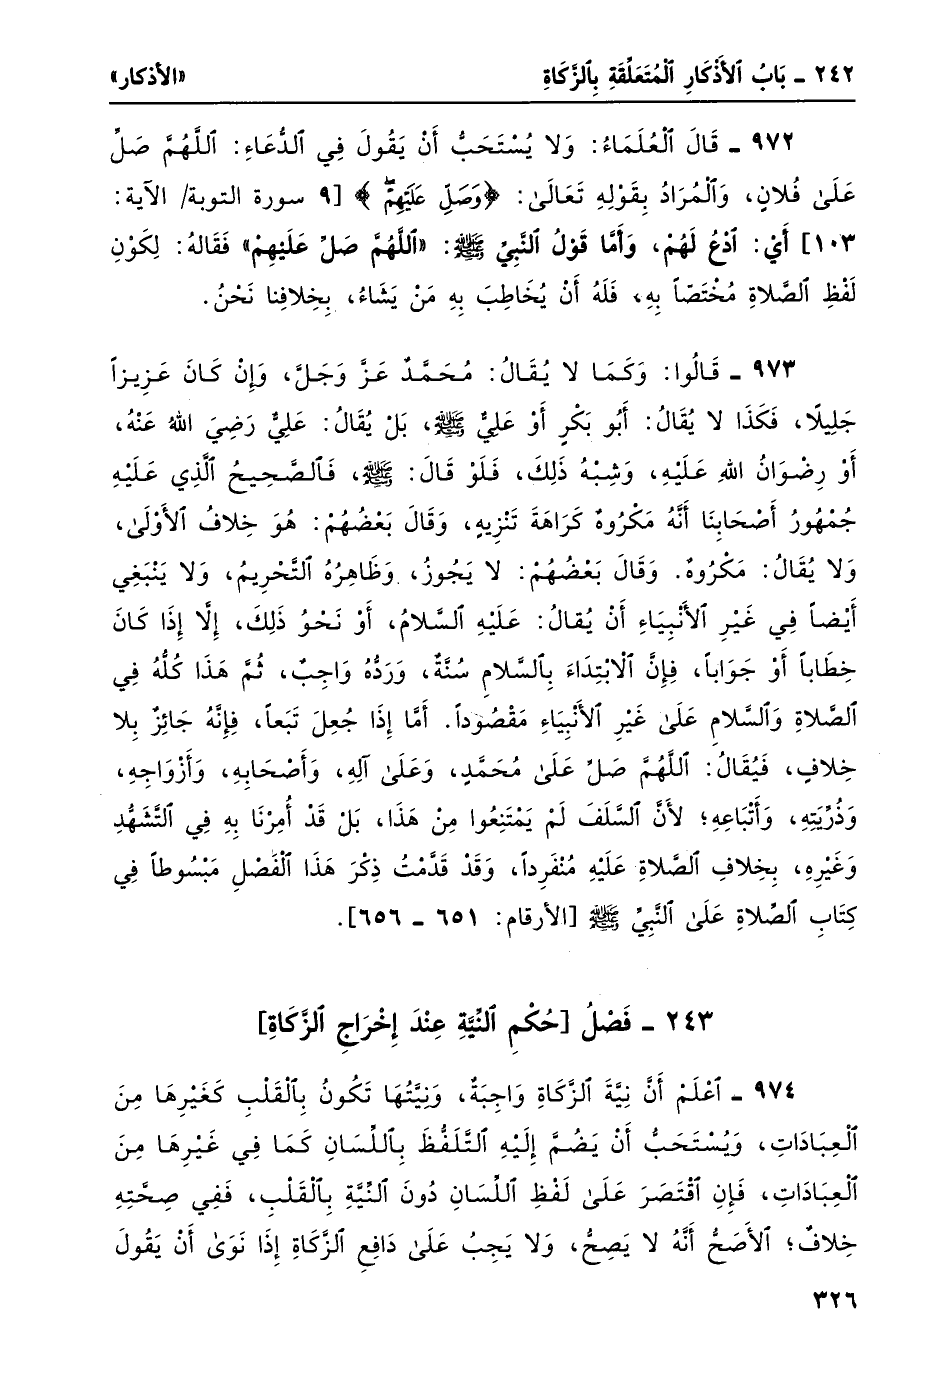 ٢٤٢ - بَابُ ٱلأَذْكَارِ ٱلْمُتَعَلِّقَةِ بِٱلزَّكَاةِ «الأذكار»
٩٧٢ - قَالَ ٱلْعُلَمَاءُ: وَلا يُسْتَحَبُّ أَنْ يَقُولَ فِي ٱلدُّعَاءِ: ٱللَّهُمَّ صَلِّ
عَلَىٰ فُلانٍ، وَٱلْمُرَادُ بِقَوْلِهِ تَعَالَىٰ: ﴿وَصَلِّ عَلَيْهِمْ﴾ [٩ سورة التوبة/ الآية:
١٠٣] أَيْ: ٱدْعُ لَهُمْ، وَأَمَّا قَوْلُ ٱلنَّبِيِّ ﷺ: «ٱللَّهُمَّ صَلِّ عَلَيْهِمْ» فَقَالهُ: لِكَوْنِ
لَفْظِ ٱلصَّلاةِ مُخْتَصّاً بِهِ، فَلَهُ أَنْ يُخَاطِبَ بِهِ مَنْ يَشَاءُ، بِخِلافِنا نَحْنُ.
٩٧٣ - قَالُوا: وَكَمَا لا يُقَالُ: مُحَمَّدٌ عَزَّ وَجَلَّ، وَإِنْ كَانَ عَزِيزاً
جَلِيلًا، فَكَذَا لا يُقَالُ: أَبُو بَكْرٍ أَوْ عَلِيٌّ ﷺ، بَلْ يُقَالُ: عَلِيٌّ رَضِيَ اللهُ عَنْهُ،
أَوْ رِضْوَانُ اللهِ عَلَيْهِ، وَشِبْهُ ذَلِكَ، فَلَوْ قَالَ: ﷺ، فَٱلصَّحِيحُ ٱلَّذِي عَلَيْهِ
جُمْهُورُ أَصْحَابِنَا أَنَّهُ مَكْرُوهٌ كَرَاهَةَ تَنْزِيهٍ، وَقَالَ بَعْضُهُمْ: هُوَ خِلافُ ٱلأَوْلَىٰ،
وَلا يُقَالُ: مَكْرُوهٌ. وَقَالَ بَعْضُهُمْ: لا يَجُوزُ، وَظَاهِرُهُ ٱلتَّحْرِيمُ، وَلا يَنْبَغِي
أَيْضاً فِي غَيْرِ ٱلأَنْبِيَاءِ أَنْ يُقالُ: عَلَيْهِ ٱلسَّلامُ، أَوْ نَحْوُ ذَلِكَ، إِلَّا إِذَا كَانَ
خِطَاباً أَوْ جَوَاباً، فِإِنَّ ٱلْابْتِدَاءَ بِٱلسَّلامِ سُنَّةٌ، وَرَدُّهُ وَاجِبٌ، ثُمَّ هَذَا كُلُّهُ فِي
ٱلصَّلاةِ وَٱلسَّلامِ عَلَىٰ غَيْرِ ٱلأَنْبِيَاءِ مَقْصُوداً. أَمَّا إِذَا جُعِلَ تَبَعاً، فَإِنَّهُ جَائِزٌ بِلا
خِلافٍ، فَيُقَالُ: ٱللَّهُمَّ صَلِّ عَلَىٰ مُحَمَّدٍ، وَعَلَىٰ آلِهِ، وَأَصْحَابِهِ، وَأَزْوَاجِهِ،
وَذُرِّيَّتِهِ، وَأَتْبَاعِهِ؛ لأَنَّ ٱلسَّلَفَ لَمْ يَمْتَنِعُوا مِنْ هَذَا، بَلْ قَدْ أُمِرْنَا بِهِ فِي ٱلتَّشَهُّدِ
وَغَيْرِهِ، بِخِلافِ ٱلصَّلاةِ عَلَيْهِ مُنْفَرِداً، وَقَدْ قَدَّمْتُ ذِكْرَ هَذَا ٱلْفَصْلِ مَبْسُوطاً فِي
كِتَابِ ٱلصَّلاةِ عَلَىٰ ٱلنَّبِيِّ ﷺ [الأرقام: ٦٥١ - ٦٥٦].
٢٤٣ - فَصْلُ [حُكْمِ ٱلنِّيَّةِ عِنْدَ إِخْرَاجِ ٱلزَّكَاةِ]
٩٧٤ - ٱعْلَمْ أَنَّ نِيَّةَ ٱلزَّكَاةِ وَاجِبَةٌ، وَنِيَّتُهَا تَكُونُ بِٱلْقَلْبِ كَغَيْرِهَا مِنَ
ٱلْعِبَادَاتِ، وَيُسْتَحَبُّ أَنْ يَضُمَّ إِلَيْهِ ٱلتَّلَفُّظَ بِٱللِّسَانِ كَمَا فِي غَيْرِهَا مِنَ
ٱلْعِبَادَاتِ، فَإِنِ ٱقْتَصَرَ عَلَىٰ لَفْظِ ٱللِّسَانِ دُونَ ٱلنِّيَّةِ بِٱلْقَلْبِ، فَفِي صِحَّتِهِ
خِلافٌ؛ ٱلأَصَحُّ أَنَّهُ لا يَصِحُّ، وَلا يَجِبُ عَلَىٰ دَافِعِ ٱلزَّكَاةِ إِذَا نَوَىٰ أَنْ يَقُولَ
٣٢٦